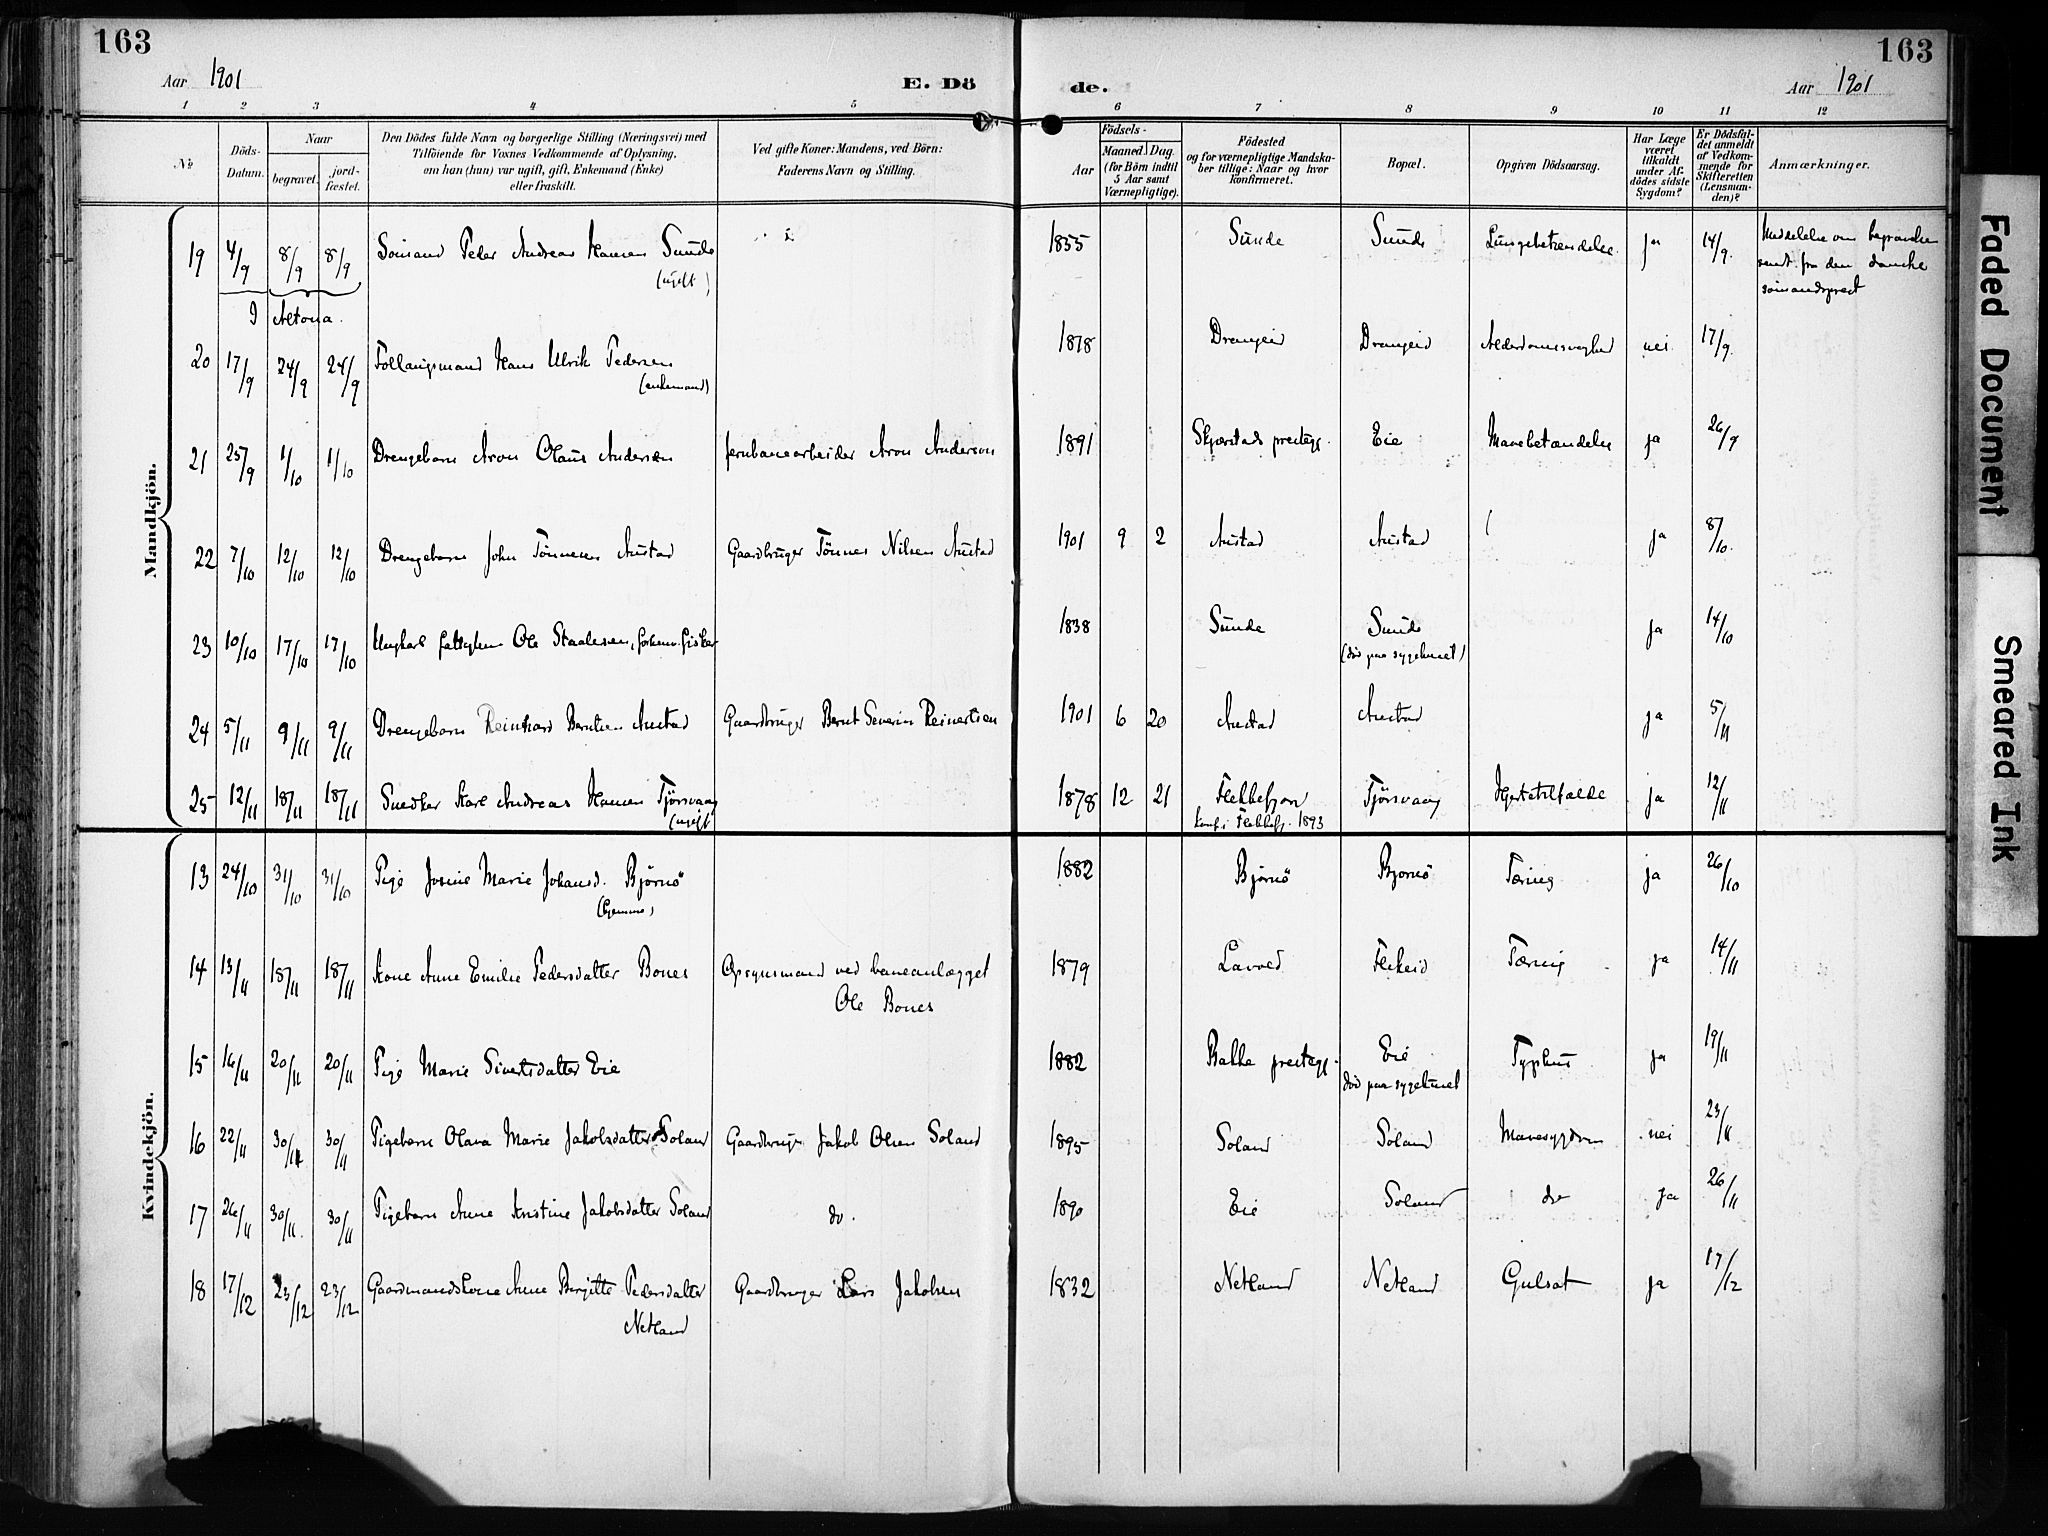 163
163
Aar 1901
E. Dö
de.
Aar 1901
1 2 3 4 5 6 7 8 9 10 11 12
No
Döds-Datum.
Naar
begravet.
jordfæstet.
Den Dödes fulde Navn og borgerlige Stilling (Næringsvei) med
Tilföiende for Voxnes Vedkommende af Oplysning,
om han (hun) var ugift, gift, Enkemand (Enke)
eller fraskilt.
Ved gifte Koner: Mandens, ved Börn:
Faderens Navn og Stilling.
Födsels-
Aar
Maaned. Dag.
(for Börn indtil
5 Aar samt
Værnepligtige).
Födested
og for værnepligtige Mandska-
ber tillige: Naar og hvor
konfirmeret.
Bopæl.
Opgiven Dödsaarsag.
Har Læge
været
tilkaldt
under Af-
dödes sidste
Sygdom?
Er Dödsfal-
det anmeldt
af Vedkom-
mende for
Skifteretten
(Lensman-
den)?
Anmærkninger.
Mandkjön.
19 4/9 8/9 8/9 Sömand Peder Andreas Hansen Sunde 1855 Sunde Sunde Lungebetændelse ja 14/9 Meddelelse om begravelsen
(ugift) sendt fra den danske
sömandsprest
I Altona.
20 17/9 24/9 24/9 Hans Ulrik Pedersen 1818 Drangeid Drangeid Alderdomssvaghed nei 17/9
(enkemand)
21 25/9 1/10 1/10 Drengebarn Aron Olaus Andersen Jernbanearbeider Aron Anderson 1891 prestegj. Eie Mavebetændelse ja 26/9
22 7/10 12/10 12/10 Drengebarn John Tönnesen Austad Gaardbruger Tönnes Nilsen Austad 1901 9 2 Austad Austad ja 8/10
23 10/10 17/10 17/10 Ungkarl Ole Staalesen, fisker 1838 Sunde Sunde ja 14/10
(död paa sygehuset)
24 5/11 9/11 9/11 Drengebarn Reinhard Berntsen Austad Gaardbruger Bernt Severin Reinertsen 1901 6 20 Austad Austad ja 5/11
25 12/11 18/11 18/11 Snedker Karl Andreas Hansen Tjörsvaag 1878 12 21 Flekkefjord Tjörsvaag Hjertetilfælde ja 12/11
(ugift) konf. i Flekkefj. 1893
Kvindekjön.
13 24/10 31/10 31/10 Pige Marie Johansd. Björnö 1882 Björnö Bjornö Tæring ja 26/10
(hjemme)
14 13/11 18/11 18/11 Kone Anne Emilie Pedersdatter Bones Opsynsmand ved baneanlægget 1879 Fleikeid Tæring ja 14/11
Ole Bones
15 16/11 20/11 20/11 Pige Marie Sivertsdatter Eie 1882 Bakke prestegj. Eie Typhus ja 19/11
död paa sygehuset
16 22/11 30/11 30/11 Pigebarn Olava Marie Jakobsdatter Soland Gaardbruger Jakob Olsen Soland 1895 Soland Soland Mavesygdom nei 23/11
17 26/11 30/11 30/11 Pigebarn Anne Kristine Jakobsdatter Soland do. 1890 Eie Soland do ja 26/11
18 17/12 23/12 23/12 Gaardmandskone Anne Birgitte Pedersdatter Gaardbruger Lars Jakobsen 1832 Netland Netland Gulsot ja 17/12
Netland
Faded Document
Smeared Ink